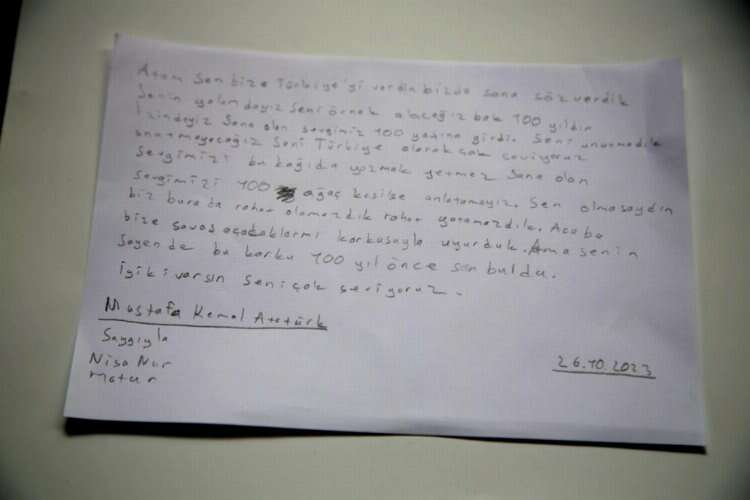 Atam Sen bize Türkiye'yi verdin bizde sana söz verdik
Senin yolundayız Seni örnek alacağız bak 100 yıldır
İzindeyiz Sana olan sevgimiz 100 yaşına girdi. Seni unutmadık
unutmayacağız Seni Türkiye olarak çok seviyoruz
Sevgimizi bu kağıda yazmak yetmez Sana olan
sevgimizi 100 ağaç kesilse anlatamayız. Sen olmasaydın
biz burada rahat olamazdık rahat yatamazdık. Acaba
bize savaş açacaklarmı korkusuyla uyurduk. Ama senin
sayende bu korku 100 yıl önce son buldu.
İyiki varsın Seni çok seviyoruz.
Mustafa Kemal Atatürk
Saygıyla
Nisa Nur
26.10.2023